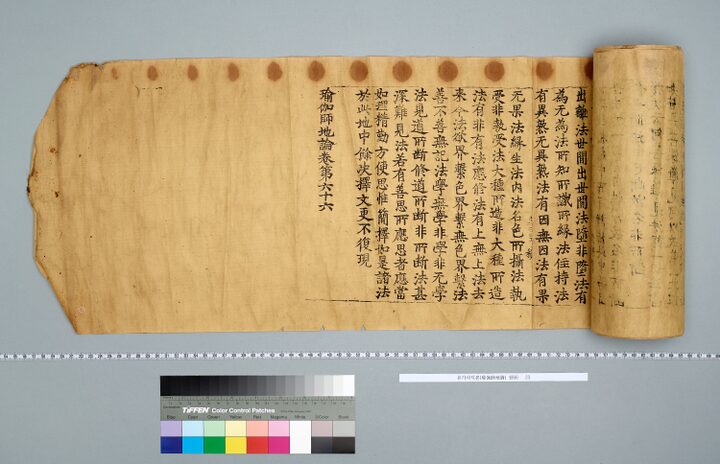 出離法世間出世間法墮非墮法有
為无為法所知所識所緣法住持法
有異熟无異熟法有因無因法有果
无果法緣生法内法名色所攝法執
受非執受法大種所造非大種所造
法有非有法應修法有上無上法去
來今法欲界繫色界繫無色界繫法
善不善無記法學無學非學非无學
法見道所断修道所断非所断法甚
深難見法若有善思所應思者應當
如理精勤方便思惟簡擇如是諸法
於此地中餘决擇文更不復現
瑜伽師地論卷第六十六
TIFFEN Color Control Patches
Blue Cyan Green Yellow Red Magenta White 3/Color Black